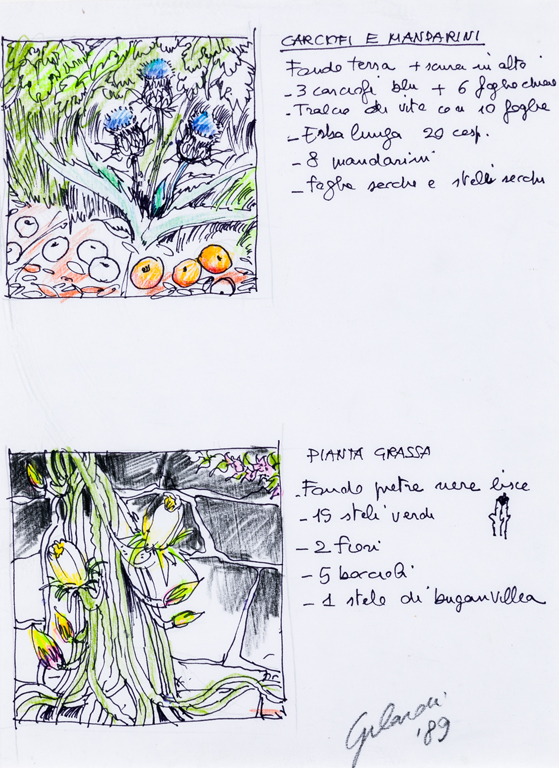 CARCIOFI E MANDARINI
Fondo terra + in alto
- 3 carciofi blu + 6 foglie chiare
- Tralcio di vite con 10 foglie
- Erba lunga 20 cesp.
- 8 mandarini
- foglie secche e steli secchi
PIANTA GRASSA
- Fondo pietre nere lisce
- 19 steli verdi
- 2 fiori
- 5 boccioli
- 1 stelo di buganvillea
Gilardi
'89